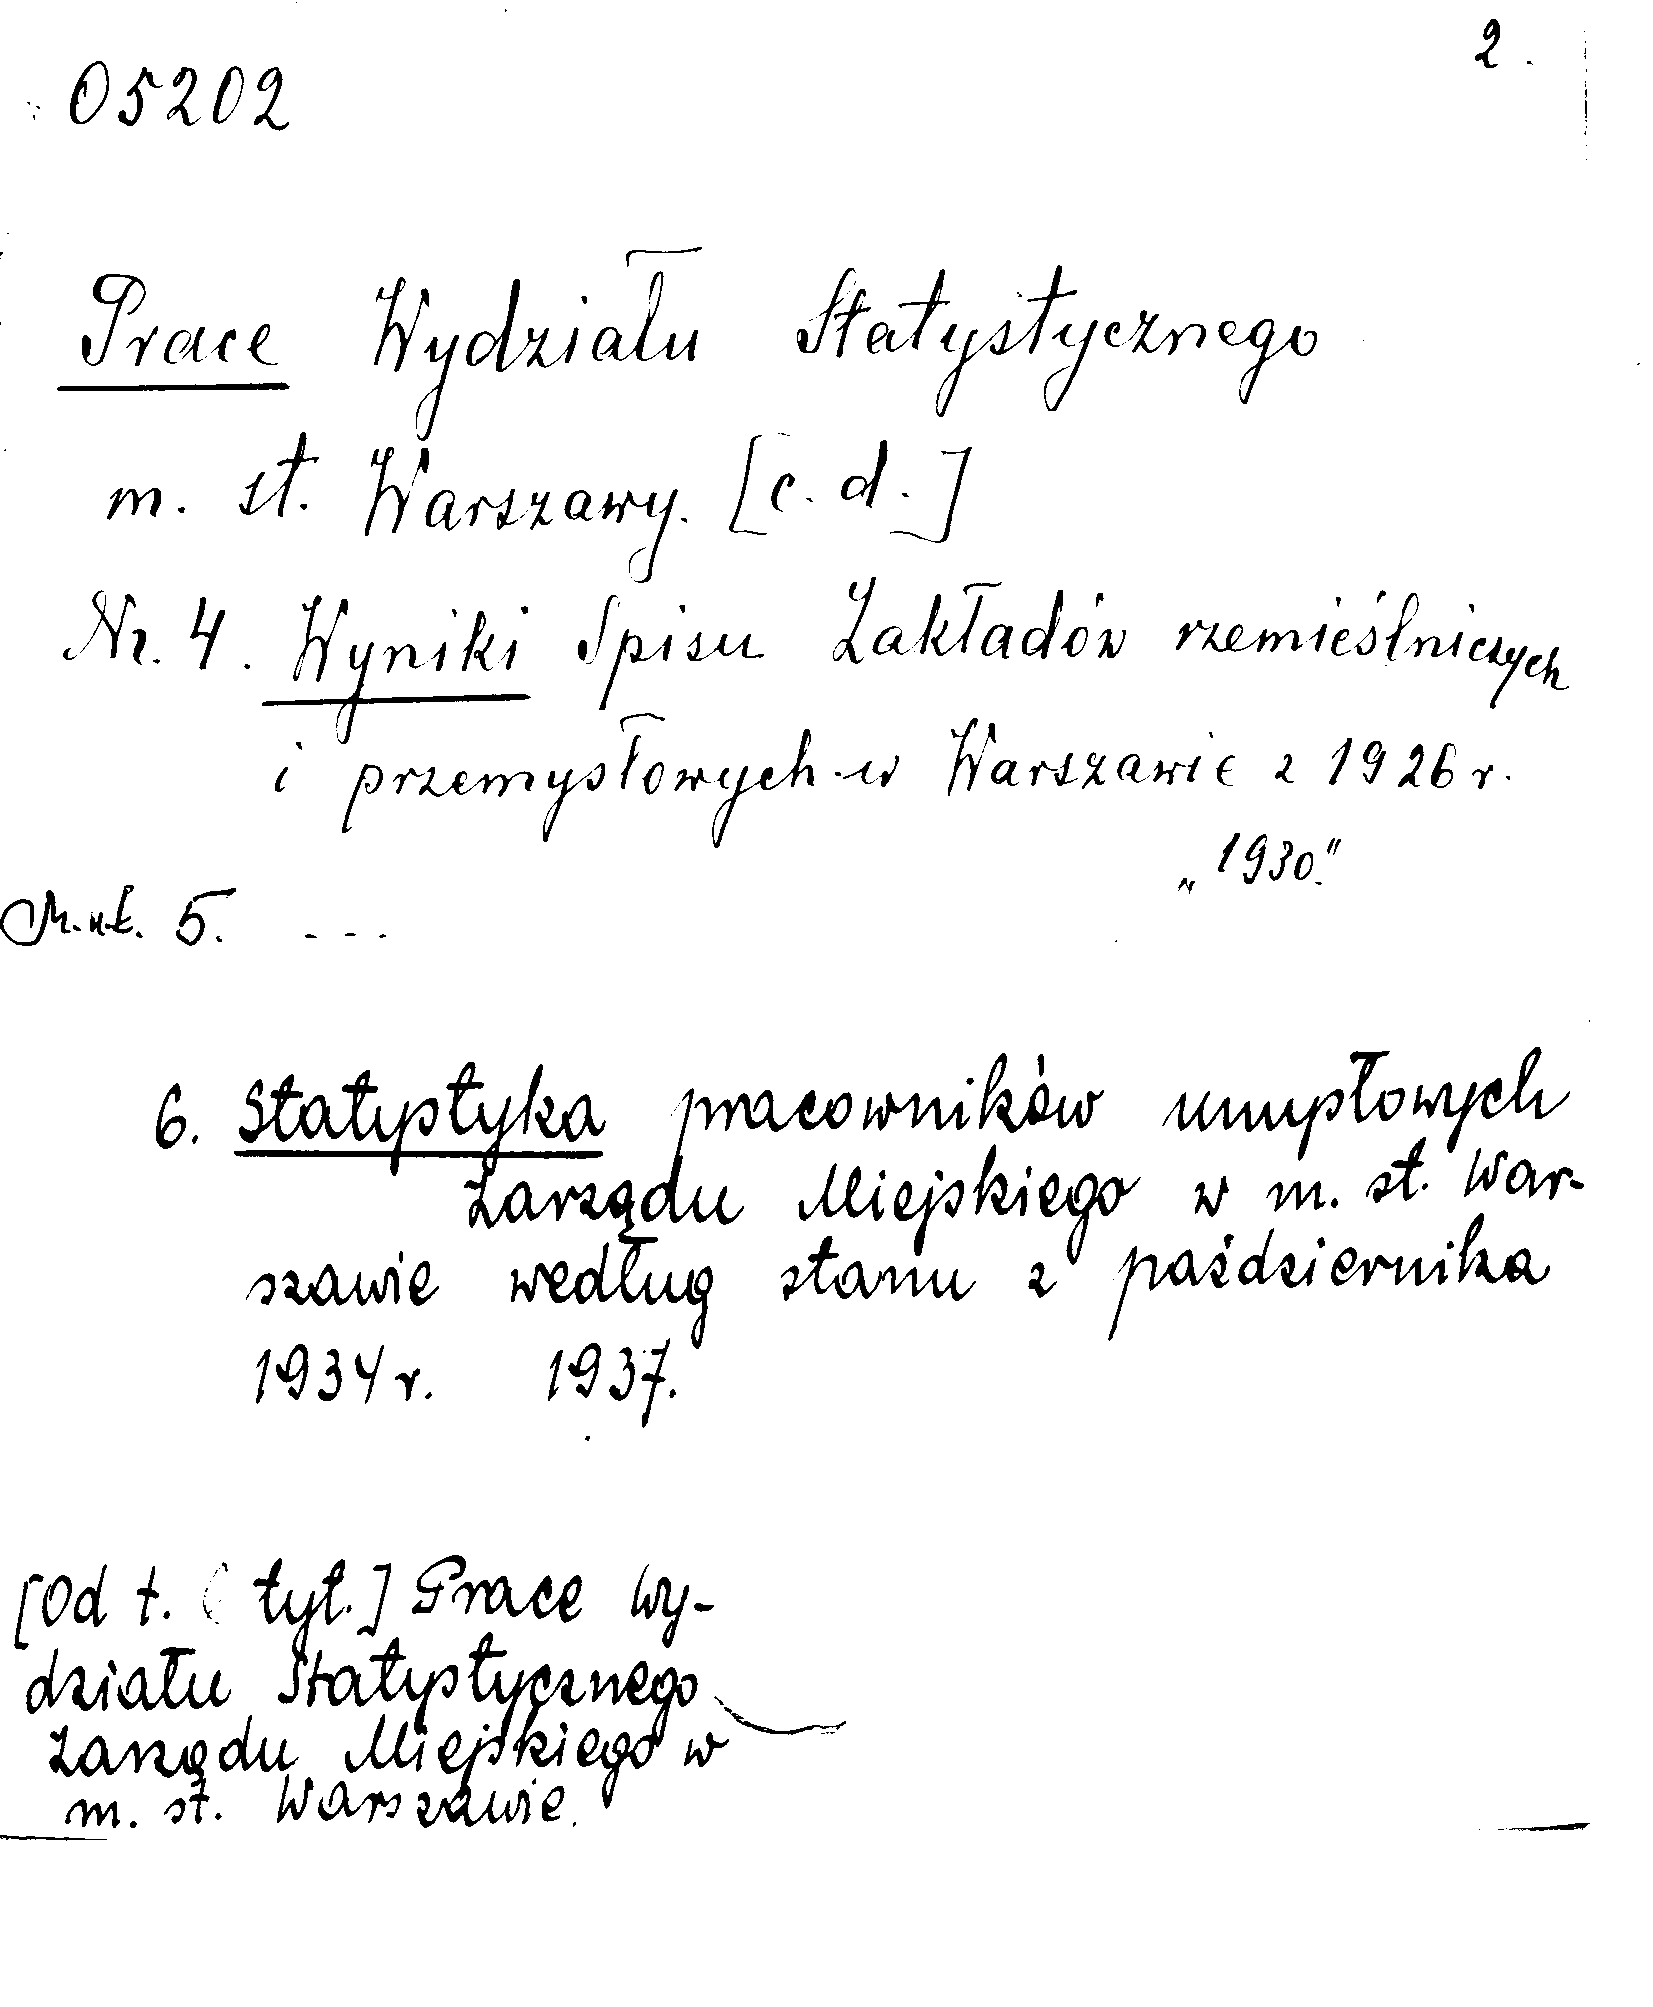 2.
05202
Prace Wydziału Statystycznego
m. st. Warszawy. [c. d.]
Nr. 4. Wyniki Spisu Zakładów rzemieślniczych
i przemysłowych w Warszawie z 1926 r.
„1930."
5. ---
6. Statystyka pracowników umysłowych
Zarządu Miejskiego w m. st. War-
szawie według stanu z października
1934 r. 1937.
[Od t. 6 tyt.] Prace Wy-
działu Statystycznego
Zarządu Miejskiego w
m. st. Warszawie.